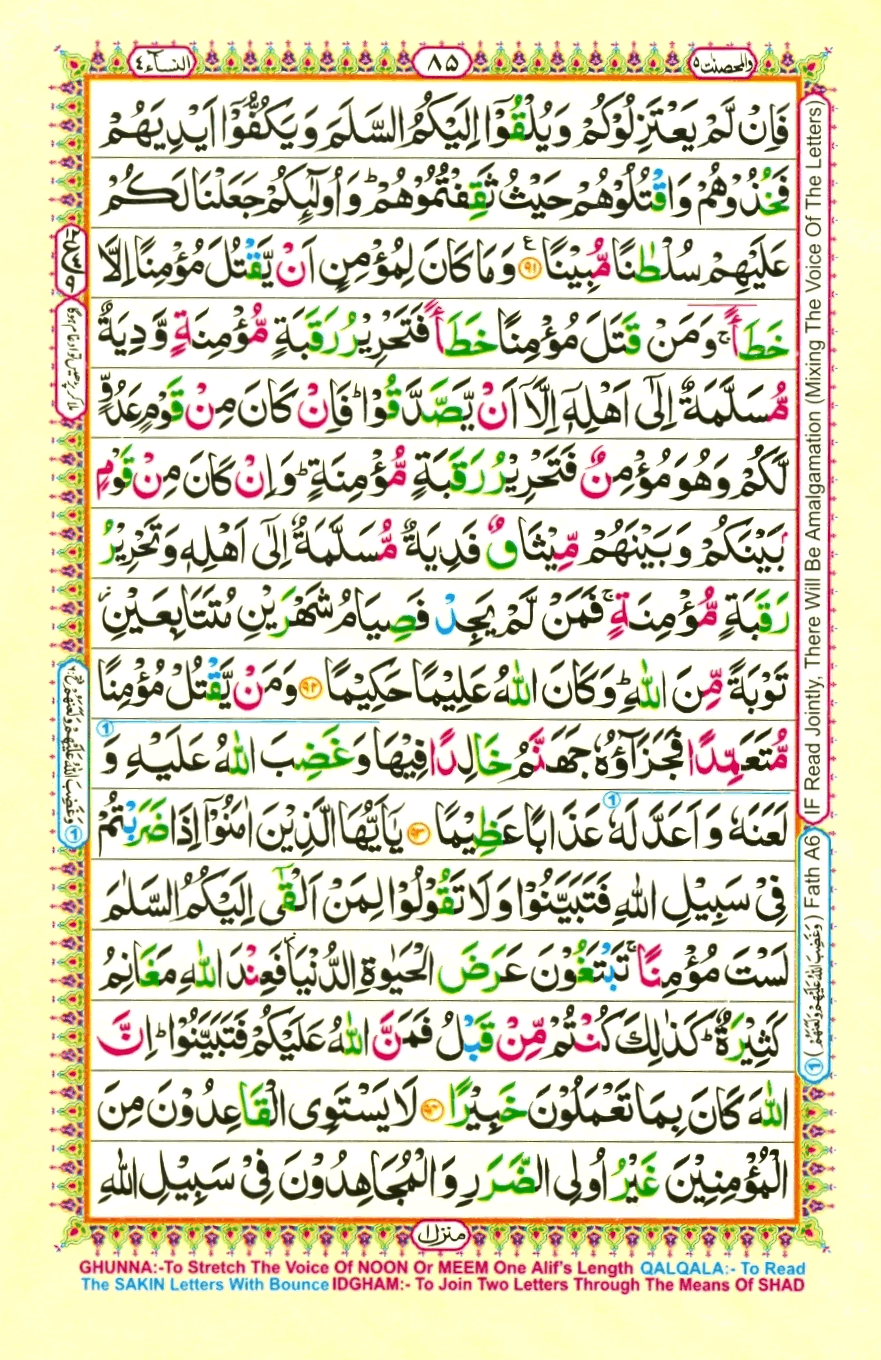 والمحصنت ٥
٨٥
النسآء ٤
فَاِنْ لَّمْ يَعْتَزِلُوْكُمْ وَيُلْقُوْٓا اِلَيْكُمُ السَّلَمَ وَيَكُفُّوْٓا اَيْدِيَهُمْ
فَخُذُوْهُمْ وَاقْتُلُوْهُمْ حَيْثُ ثَقِفْتُمُوْهُمْ ؕ وَاُولٰٓئِكُمْ جَعَلْنَا لَكُمْ
عَلَيْهِمْ سُلْطٰنًا مُّبِيْنًا ﴿۹۱﴾ وَمَا كَانَ لِمُؤْمِنٍ اَنْ يَّقْتُلَ مُؤْمِنًا اِلَّا
خَطَـًٔا ۚ وَمَنْ قَتَلَ مُؤْمِنًا خَطَـًٔا فَتَحْرِيْرُ رَقَبَةٍ مُّؤْمِنَةٍ وَّدِيَةٌ
مُّسَلَّمَةٌ اِلٰٓى اَهْلِهٖٓ اِلَّاۤ اَنْ يَّصَّدَّقُوْا ؕ فَاِنْ كَانَ مِنْ قَوْمٍ عَدُوٍّ
لَّكُمْ وَهُوَ مُؤْمِنٌ فَتَحْرِيْرُ رَقَبَةٍ مُّؤْمِنَةٍ ؕ وَاِنْ كَانَ مِنْ قَوْمٍۭ
بَيْنَكُمْ وَبَيْنَهُمْ مِّيْثَاقٌ فَدِيَةٌ مُّسَلَّمَةٌ اِلٰٓى اَهْلِهٖ وَتَحْرِيْرُ
رَقَبَةٍ مُّؤْمِنَةٍ ۚ فَمَنْ لَّمْ يَجِدْ فَصِيَامُ شَهْرَيْنِ مُتَتَابِعَيْنِ ؗ
تَوْبَةً مِّنَ اللّٰهِ ؕ وَكَانَ اللّٰهُ عَلِيْمًا حَكِيْمًا ﴿۹۲﴾ وَمَنْ يَّقْتُلْ مُؤْمِنًا
مُّتَعَمِّدًا فَجَزَآؤُهٗ جَهَنَّمُ خَالِدًا فِيْهَا وَغَضِبَ اللّٰهُ عَلَيْهِ وَ
لَعَنَهٗ وَاَعَدَّ لَهٗ عَذَابًا عَظِيْمًا ﴿۹۳﴾ يٰٓاَيُّهَا الَّذِيْنَ اٰمَنُوْٓا اِذَا ضَرَبْتُمْ
فِيْ سَبِيْلِ اللّٰهِ فَتَبَيَّنُوْا وَلَا تَقُوْلُوْا لِمَنْ اَلْقٰٓى اِلَيْكُمُ السَّلٰمَ
لَسْتَ مُؤْمِنًا ۚ تَبْتَغُوْنَ عَرَضَ الْحَيٰوةِ الدُّنْيَا ؗ فَعِنْدَ اللّٰهِ مَغَانِمُ
كَثِيْرَةٌ ؕ كَذٰلِكَ كُنْتُمْ مِّنْ قَبْلُ فَمَنَّ اللّٰهُ عَلَيْكُمْ فَتَبَيَّنُوْا ؕ اِنَّ
اللّٰهَ كَانَ بِمَا تَعْمَلُوْنَ خَبِيْرًا ﴿۹۴﴾ لَا يَسْتَوِى الْقَاعِدُوْنَ مِنَ
الْمُؤْمِنِيْنَ غَيْرُ اُولِى الضَّرَرِ وَالْمُجَاهِدُوْنَ فِيْ سَبِيْلِ اللّٰهِ
منزل ١
IF Read Jointly, There Will Be Amalgamation (Mixing The Voice Of The Letters)
① (وَغَضِبَ اللّٰهُ عَلَيْهِمْ وَلَعَنَهُمْ) Fath A6
GHUNNA:-To Stretch The Voice Of NOON Or MEEM One Alif's Length QALQALA:- To Read
The SAKIN Letters With Bounce IDGHAM:- To Join Two Letters Through The Means Of SHAD